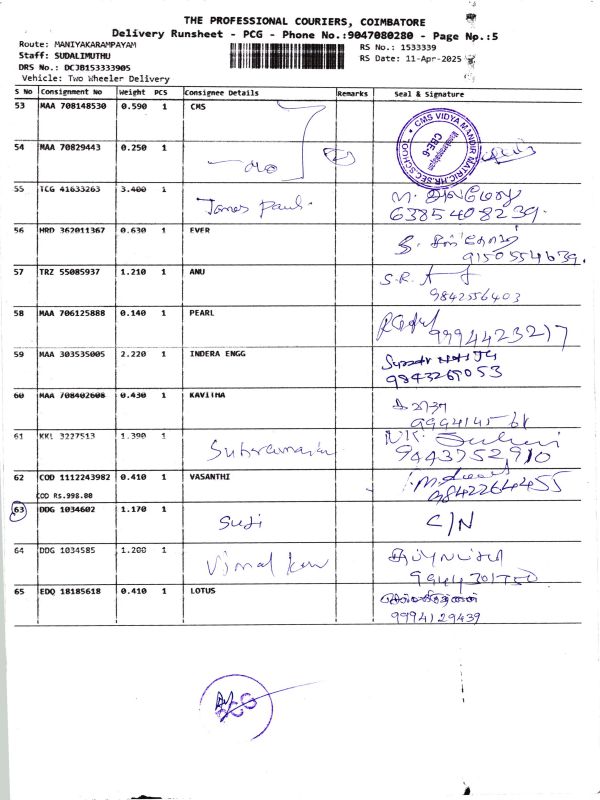 THE PROFESSIONAL COURIERS, COIMBATORE
Delivery Runsheet - PCG - Phone No.:9047080280 - Page Np.:5
Route: MANIYAKARAMPAYAM
RS No.: 1533339
Staff: SUDALIMUTHU
RS Date: 11-Apr-2025
DRS No.: DCJB153333905
Vehicle: Two Wheeler Delivery
S No Consignment No Weight PCS Consignee Details Remarks Seal & Signature
53 MAA 708148530 0.590 1 CMS
CMS VIDYA MANDIR MATRIC.HR.SEC.SCHOOL
CBE-6
54 MAA 70829443 0.250 1
55 TCG 41633263 3.400 1 James Paul.
6385408239.
56 HRD 362011367 0.630 1 EVER
9150554639.
57 TRZ 55085937 1.210 1 ANU S.R.
9842556403
58 MAA 706125888 0.140 1 PEARL
9994423217
59 MAA 303535005 2.220 1 INDERA ENGG
9843267053
60 MAA 708402608 0.430 1 KAVITHA
61 KKL 3227513 1.390 1
9443752910
62 COD 1112243982 0.410 1 VASANTHI
9842264455
COD RS.998.00
63 DDG 1034602 1.170 1 Suji C/N
64 DDG 1034585 1.200 1
9944301750
65 EDQ 18185618 0.410 1 LOTUS
9994129439